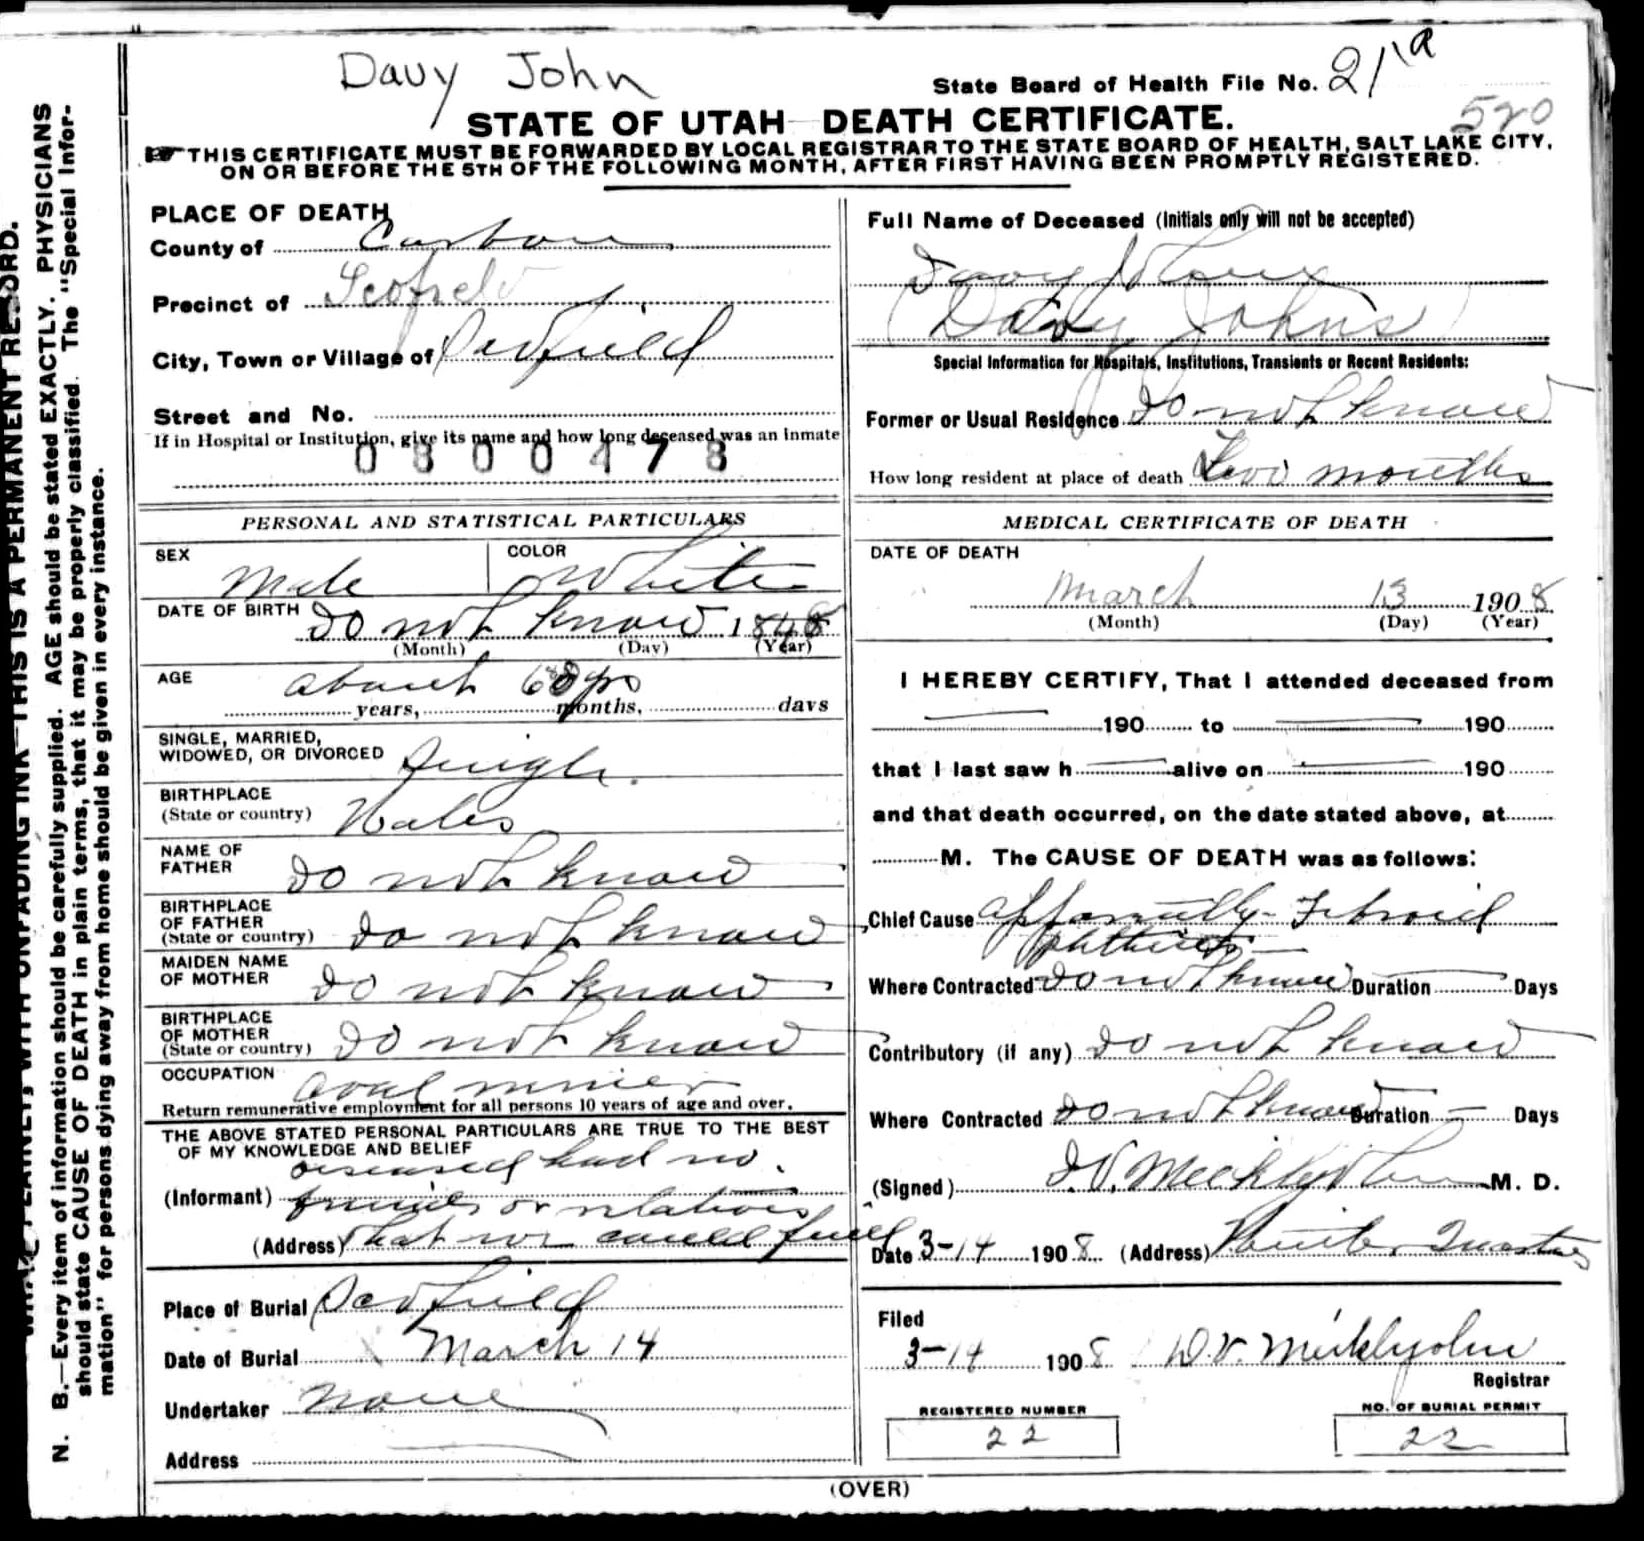 Davy John
State Board of Health File No. 21
520
STATE OF UTAH DEATH CERTIFICATE.
THIS CERTIFICATE MUST BE FORWARDED BY LOCAL REGISTRAR TO THE STATE BOARD OF HEALTH, SALT LAKE CITY,
ON OR BEFORE THE 5TH OF THE FOLLOWING MONTH, AFTER FIRST HAVING BEEN PROMPTLY REGISTERED.
PLACE OF DEATH
County of Carbon
Precinct of Scofield
City, Town or Village of Scofield
Street and No.
If in Hospital or Institution, give its name and how long deceased was an inmate
0800478
Full Name of Deceased (Initials only will not be accepted)
Davy Johns
(Davy Johns)
Special Information for Hospitals, Institutions, Transients or Recent Residents:
Former or Usual Residence do not know
How long resident at place of death Two months
PERSONAL AND STATISTICAL PARTICULARS
SEX Male
COLOR White
DATE OF BIRTH do not know 1848
(Month) (Day) (Year)
AGE about 60 yrs
years, months, days
SINGLE, MARRIED,
WIDOWED, OR DIVORCED Single.
BIRTHPLACE
(State or country) Wales
NAME OF
FATHER do not know
BIRTHPLACE
OF FATHER
(State or country) do not know
MAIDEN NAME
OF MOTHER do not know
BIRTHPLACE
OF MOTHER
(State or country) do not know
OCCUPATION Coal miner
Return remunerative employment for all persons 10 years of age and over.
THE ABOVE STATED PERSONAL PARTICULARS ARE TRUE TO THE BEST
OF MY KNOWLEDGE AND BELIEF
deceased had no
(Informant) friends or relatives
(Address) that we could find
Place of Burial Scofield
Date of Burial March 14
Undertaker None
Address
MEDICAL CERTIFICATE OF DEATH
DATE OF DEATH
March 13 1908
(Month) (Day) (Year)
I HEREBY CERTIFY, That I attended deceased from
190 to 190
that I last saw h alive on 190
and that death occurred, on the date stated above, at
M. The CAUSE OF DEATH was as follows:
Chief Cause apparently Fibroid
phthisis
Where Contracted do not know Duration Days
Contributory (if any) do not know
Where Contracted do not know Duration Days
(Signed) D.V. Mecklejohn M. D.
Date 3-14 1908 (Address) Winter Quarters
Filed
3-14 1908 D.V. Mecklejohn
Registrar
REGISTERED NUMBER
22
NO. OF BURIAL PERMIT
22
(OVER)
N. B.—Every item of information should be carefully supplied. AGE should be stated EXACTLY. PHYSICIANS
should state CAUSE OF DEATH in plain terms, that it may be properly classified. The "Special Infor-
mation" for persons dying away from home should be given in every instance.
WRITE PLAINLY, WITH UNFADING INK—THIS IS A PERMANENT RECORD.